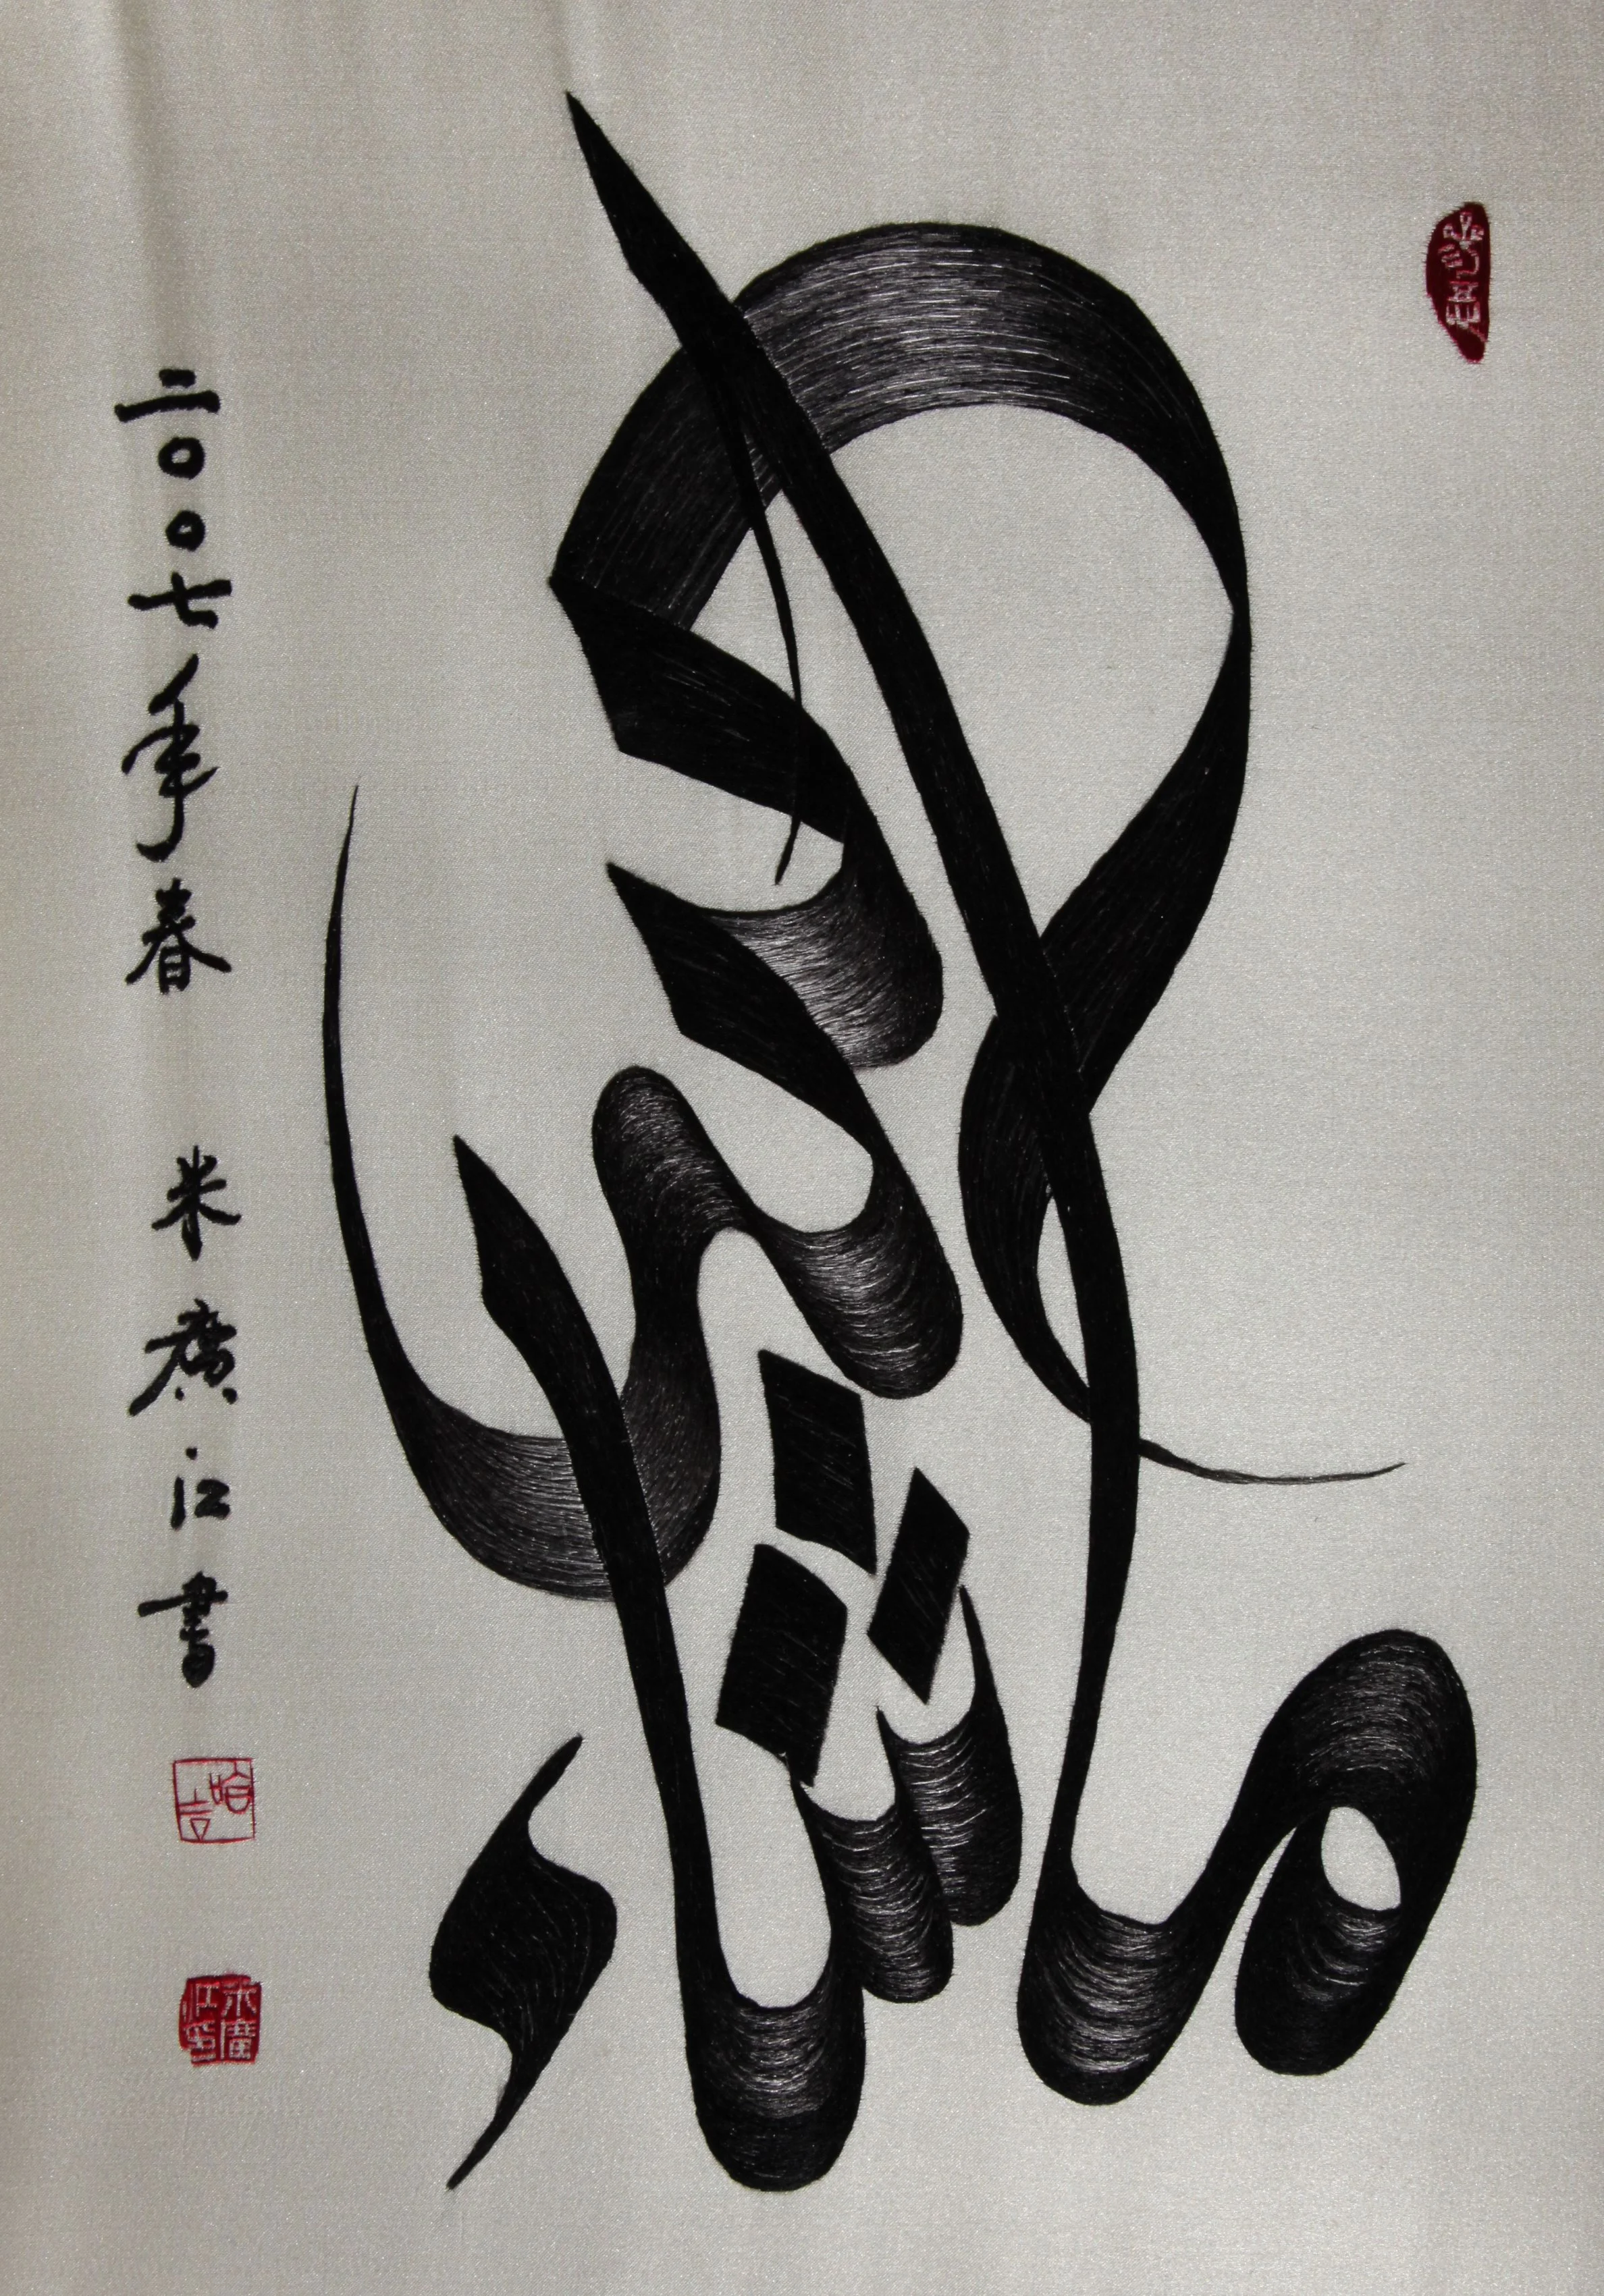 ما شاء الله
二〇〇七年春 米廣江書
米廣江印